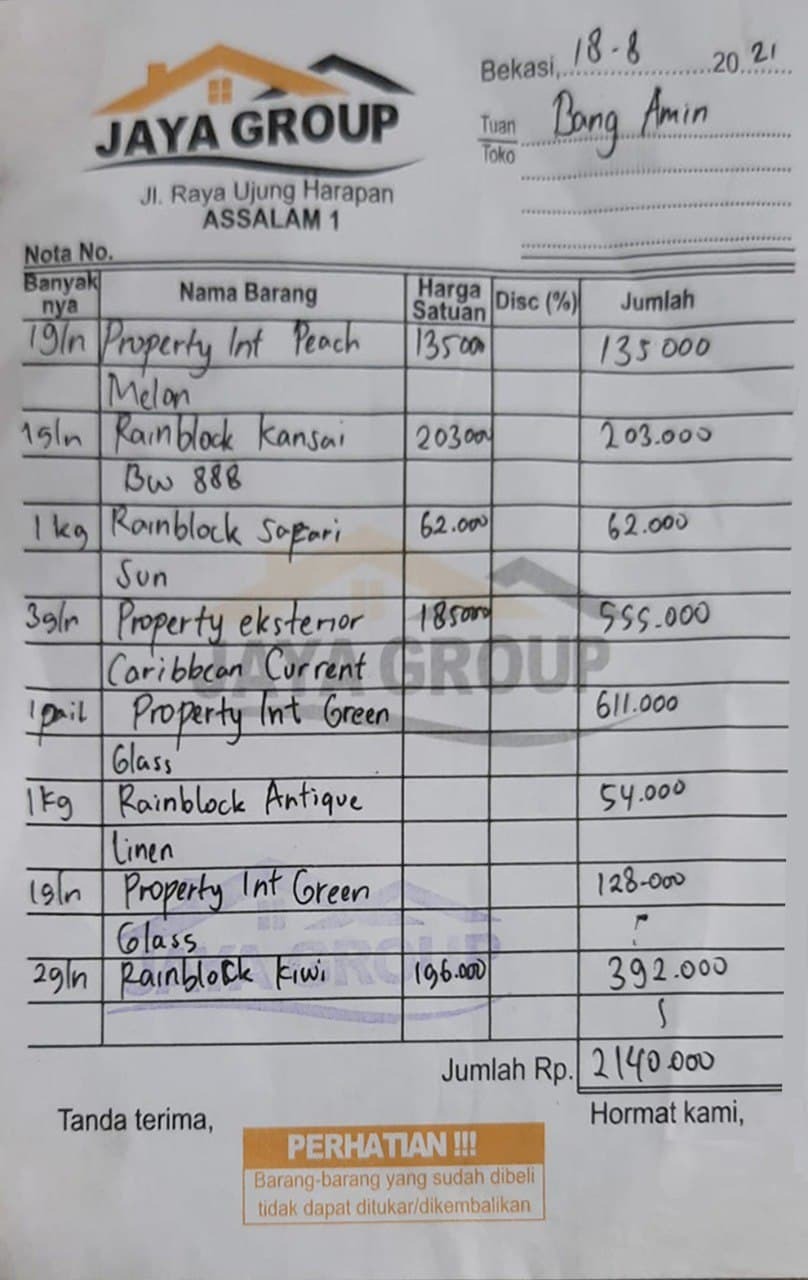 JAYA GROUP
Jl. Raya Ujung Harapan
ASSALAM 1
Bekasi, 18-8 2021
Tuan Bang Amin
Toko
Nota No.
Banyak nya Nama Barang Harga Satuan Disc (%) Jumlah
1gln Property Int Peach 135000 135000
Melon
1gln Rainblock Kansai 203000 203.000
BW 888
1 kg Rainblock Safari 62.000 62.000
Sun
3gln Property eksterior 185000 555.000
Caribbean Current
1 pail Property Int Green 611.000
Glass
1 Kg Rainblock Antique 54.000
Linen
1gln Property Int Green 128-000
Glass
2gln Rainblock Kiwi 196.000 392.000
Jumlah Rp. 2140.000
Tanda terima, Hormat kami,
PERHATIAN !!!
Barang-barang yang sudah dibeli
tidak dapat ditukar/dikembalikan
JAYA GROUP
JAYA GROUP